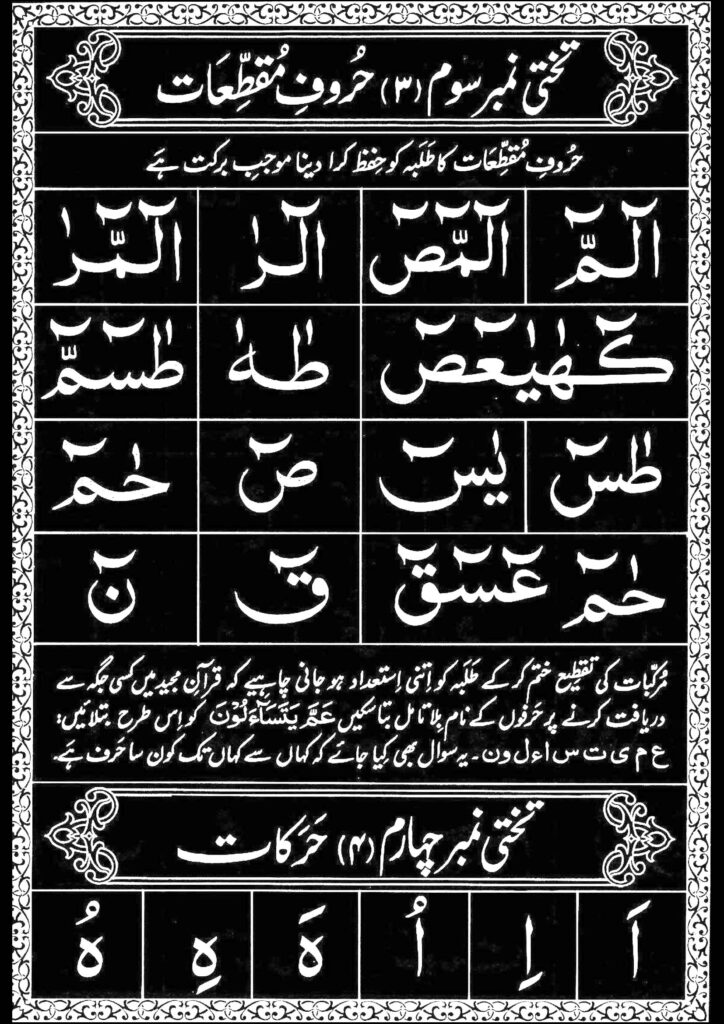 تختی نمبر سوم (۳) حُروفِ مُقَطِّعَات
حُروفِ مُقَطِّعَات کا طَلَبہ کو حِفظ کرا دینا موجبِ برکت ہَے
الٓمّٓ الٓمّٓصٓ الٓرٰ الٓمّٓرٰ
كٓهٰيٰعٓصٓ طٰهٰ طٰسٓمّٓ
طٰسٓ يٰسٓ صٓ حٰمٓ
حٰمٓ عٓسٓقٓ قٓ نٓ
مُرکّبات کی تقطیع ختم کر کے طَلَبہ کو اِتنی اِستعداد ہو جانی چاہیے کہ قرآنِ مجید میں کسی جگہ سے
دریافت کرنے پر حَرفوں کے نام بِلا تامل بتا سکیں عَمَّ يَتَسَآءَلُوْنَ کو اِس طرح بتلائیں:
ع م ی ت س ا ء ل و ن۔ یہ سوال بھی کِیا جائے کہ کہاں سے کہاں تک کون سا حَرف ہَے۔
تختی نمبر چہارم (۴) حَرَکات
اَ اِ اُ هَ هِ هُ